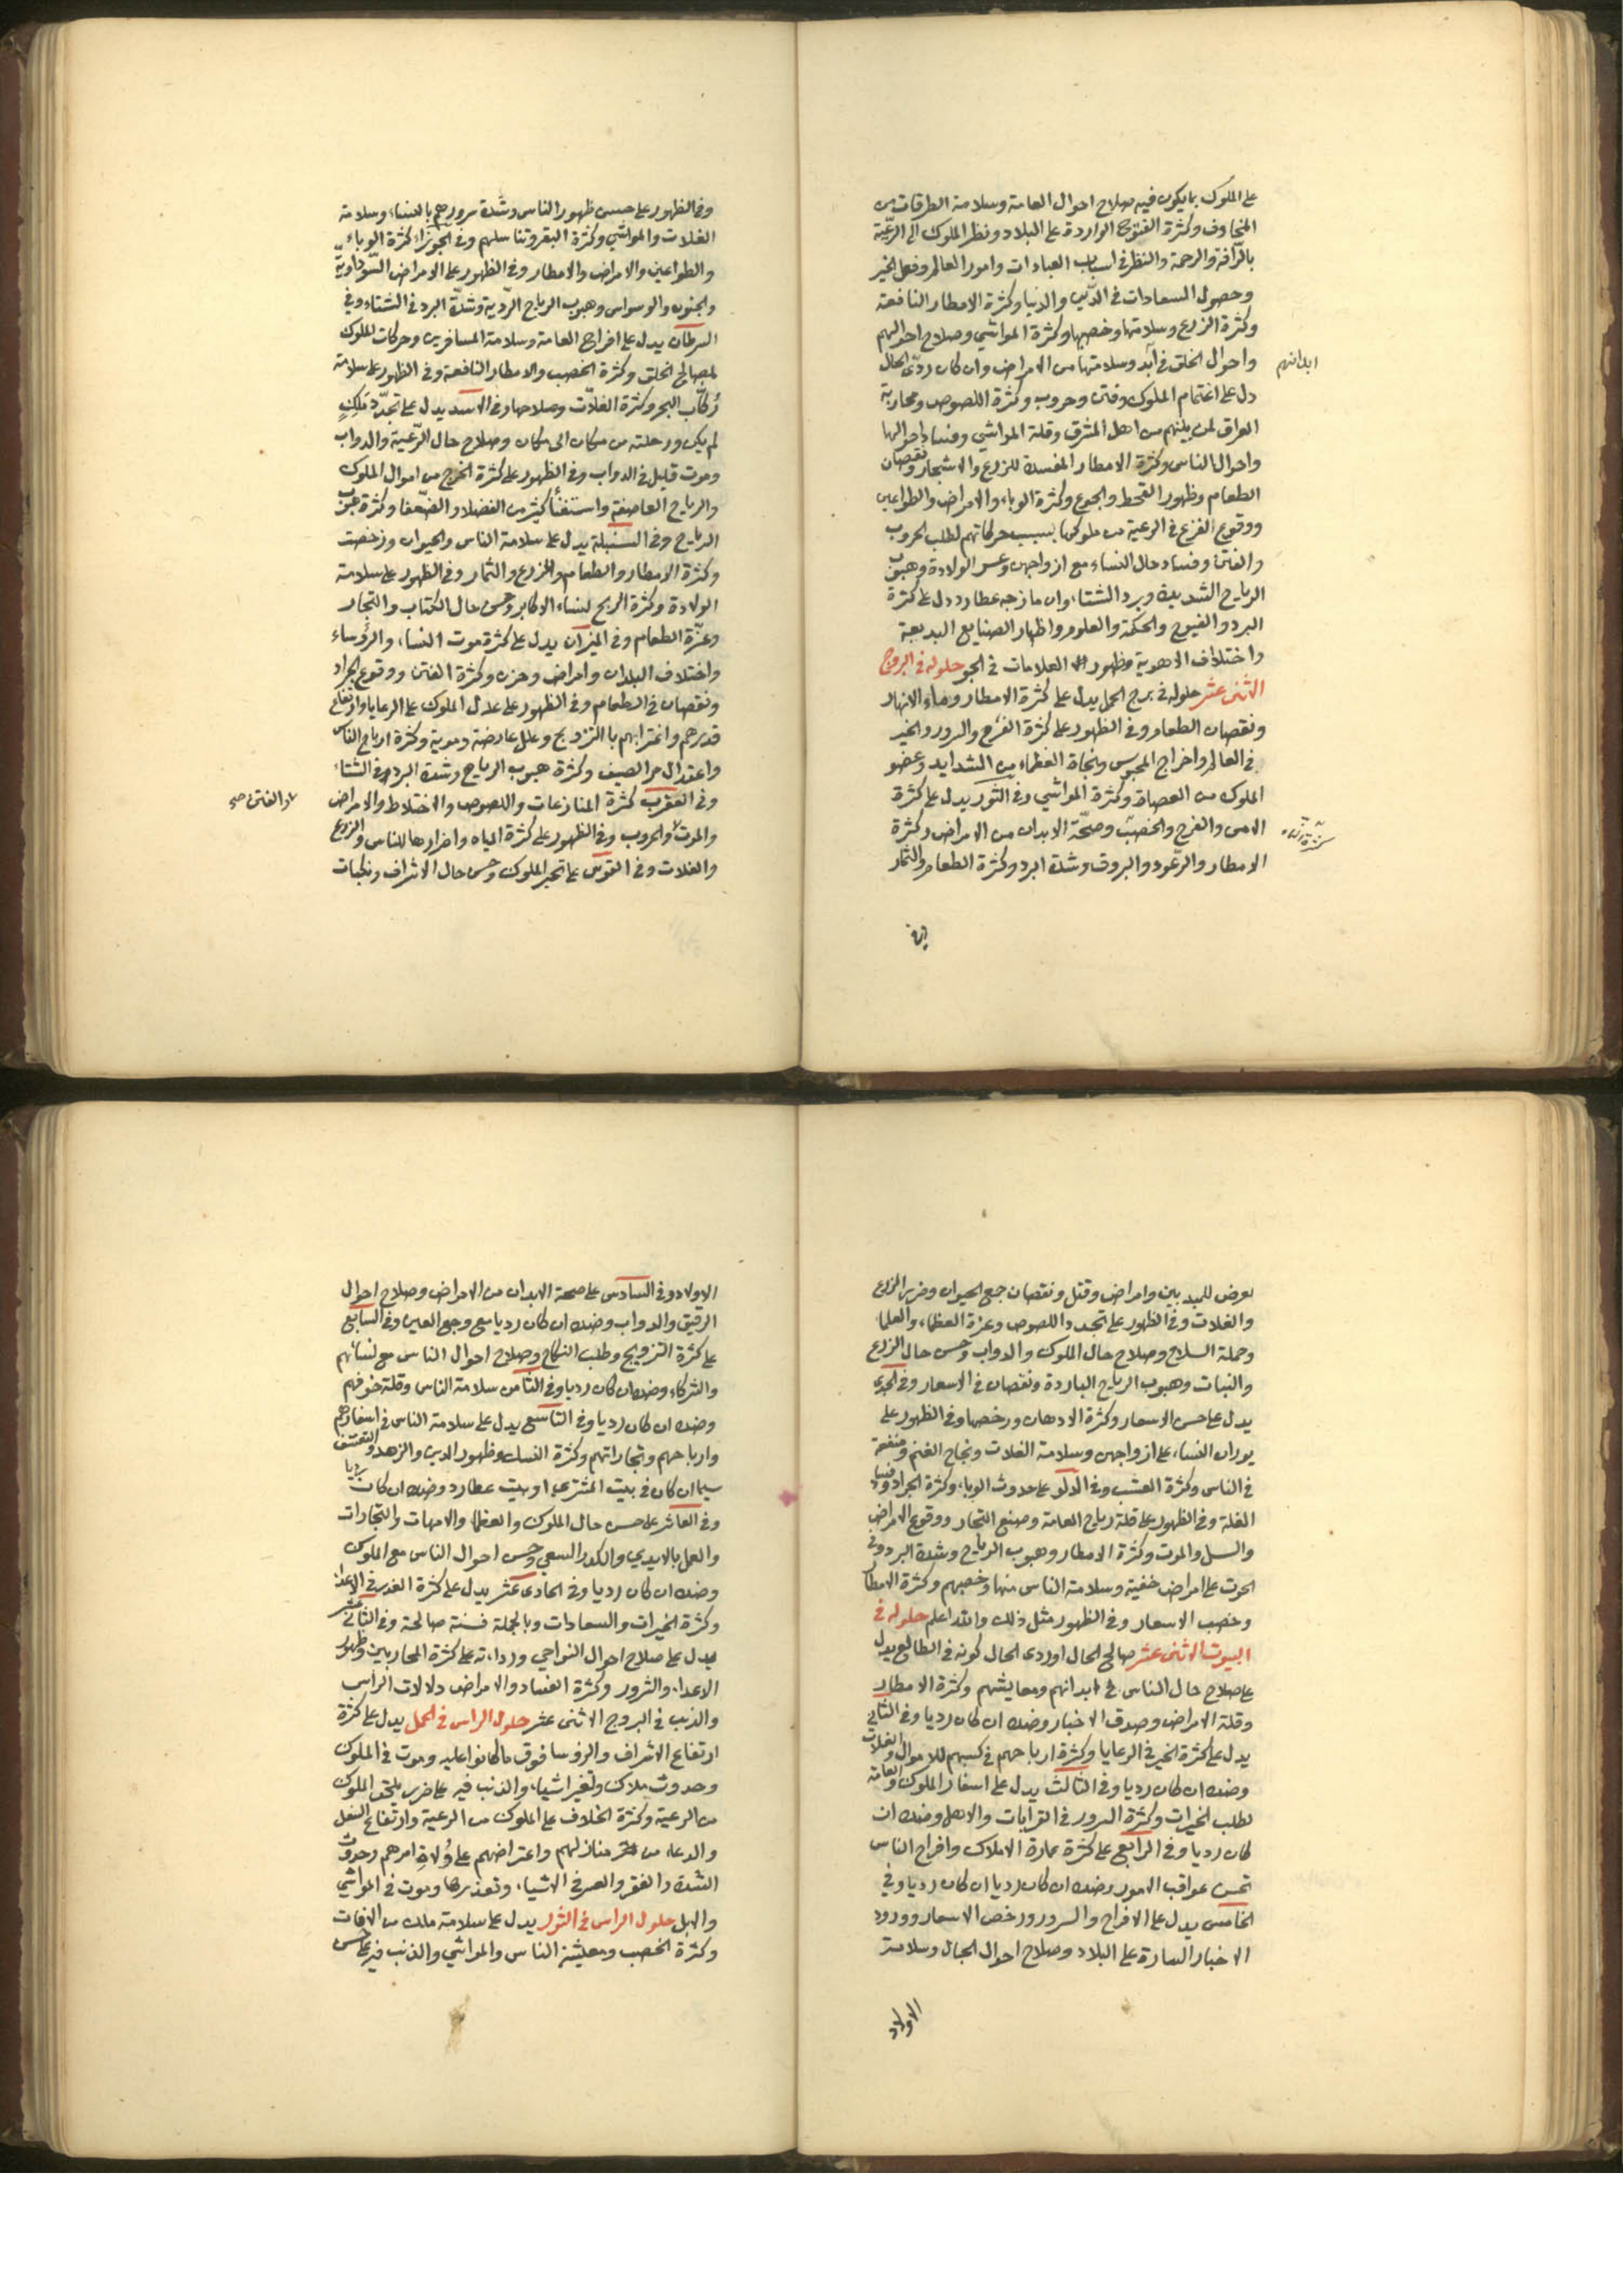 على الملوك بما يكون فيه صلاح احوال العامة وسلامة الطرقات من
المخاوف وكثرة الفتوح الواردة على البلاد ونظر الملوك الى الرعيّة
بالرّافة والرحمة والنظر في اسباب العبادات وامور العالم وفعل الخير
وحصول السعادات في الدّين والدنيا وكثرة الامطار النافعة
وكثرة الزرع وسلامتها وخصبها وكثرة المواشي وصلاح احوالهم
واحوال الخلق في آبد وسلامتها من الامراض وان كان ردّى الحال
ابدانهم
دل على اغتمام الملوك وفتن وحروب وكثرة اللصوص ومحاربة
العراق لمن يليهم من اهل المشرق وقلة المواشي وفساد احوالها
واحوال الناس وكثرة الامطار المفسدة للزرع والاشجار ونقصان
الطعام وظهور القحط والجوع وكثرة الوباء والامراض والطواعين
ووقوع الفزع في الرعية من ملوكها بسبب حركاتهم لطلب الحروب
والفتن وفساد حال النساء مع ازواجهن وعسر الولادة وهبوب
الرياح الشديدة وبرد الشتاء وان مازجه عطارد دل على كثرة
البرد والفيوح والحكمة والعلوم واظهار الصنايع البديعة
واختلاف الاهوية وظهور العلامات في الجو حلوله في البروج
الاثنى عشر حلوله في برج الحمل يدل على كثرة الامطار وماء الانهار
ونقصان الطعام وفي الظهور على كثرة الفرح والسرور والخير
في العالم واخراج المحبوس ونجاة العظماء من الشدايد وعفو
الملوك من العصاة وكثرة المواشي وفي الثور يدل على كثرة
الامن والفرح والخصب وصحّة الابدان من الامراض وكثرة
الامطار والرعود والبروق وشدة البرد وكثرة الطعام والثمار
وفي
وفي الظهور على حسن ظهور الناس وشدة سرورهم بالنساء وسلامة
الغلات والمواشي وكثرة البقر وتناسلهم وفي الجوزاء كثرة الوباء
والطواعين والامراض والامطار وفي الظهور على الامراض السّوداويّة
والجنون والوسواس وهبوب الرياح الرّدية وشدّة البرد في الشتاء وفي
السرطان يدل على افراح العامة وسلامة المسافرين وحركات الملوك
لمصالح الخلق وكثرة الخصب والامطار النافعة وفي الظهور على سلامة
رُكّاب البحر وكثرة الغلّات وصلاحها وفي الاسد يدل على تجدّد مَلِكٍ
لم يكن ورحلته من مكان الى مكان وصلاح حال الرّعية والدواب
وموت قليل في الدواب وفي الظهور على كثرة الخرج من اموال الملوك
والرياح العاصفة واستغناء كثير من الفضلاء والضّعفا وكثرة هبوب
الرياح وفي السنبلة يدل على سلامة الناس والحيوان ورخصت
وكثرة الامطار والطعام والزرع والثمار وفي الظهور على سلامة
الولادة وكثرة الربح لنساء الاكابر وحسن حال الكتاب والتجار
وعزّة الطعام وفي الميزان يدل على كثرة موت النساء والرؤساء
واختلاف البلدان وامراض وحزن وكثرة الفتن ووقوع الجراد
ونقصان في الطعام وفي الظهور على عدل الملوك على الرعايا وارتفاع
قدرهم واغترابهم بالتزويج وعلل عارضة دموية وكثرة ارباح الناس
واعتدال حر الصيف وكثرة هبوب الرياح وشدة البرد في الشتاء
وفي العقرب كثرة المنازعات واللصوص والاختلاط والامراض
والموت والحروب وفي الظهور على كثرة المياه واضرارها للناس والزرع
والفتن صح
والغلات وفي القوس على تحير الملوك وحسن حال الاشراف ونكبات
يعرض للمدبرين وامراض وقتل ونقصان جميع الحيوان وضرر الزرع
والغلات وفي الظهور على تجدد اللصوص وعزة العظماء والعلماء
وحملة السلاح وصلاح حال الملوك والدواب وحسن حال الزرع
والنبات وهبوب الرياح الباردة ونقصان في الاسعار وفي الجدى
يدل على حسن الاسعار وكثرة الادهان ورخصها وفي الظهور على
بوران النساء على ازواجهن وسلامة الغلات ونجاح الغنم ومنفعة
في الناس وكثرة العشب وفي الدلو على حدوث الوباء وكثرة الجراد وفساد
الغلة وفي الظهور على قلة رباح العامة وصنع التجار ووقوع الامراض
والسل والموت وكثرة الامطار وهبوب الرياح وشدة البرد وفي
الحوت على امراض خفية وسلامة الناس منها وخصبهم وكثرة الامطار
وخصب الاسعار وفي الظهور مثل ذلك والله اعلم حلوله في
البيوت الاثنى عشر صالح الحال او ردى الحال كونه في الطالع يدل
على صلاح حال الناس في ابدانهم ومعايشهم وكثرة الامطار
وقلة الامراض وصدق الاخبار وضده ان كان رديا وفي الثاني
يدل على كثرة الخير في الرعايا وكثرة ارباحهم في كسبهم للاموال والغلات
وضده ان كان رديا وفي الثالث يدل على اسفار الملوك والعامة
لطلب الخيرات وكثرة السرور في القرابات والاهل وضده ان
كان رديا وفي الرابع على كثرة عمارة الاملاك وافراح الناس
بحسن عواقب الامور وضده ان كان رديا ان كان رديا وفي
الخامس يدل على الافراح والسرور ورخص الاسعار وورود
الاخبار السارة على البلاد وصلاح احوال الجبال وسلامة
الاولاد
الاولاد وفي السادس على صحة الابدان من الامراض وصلاح احوال
الرقيق والدواب وضده ان كان رديا مع وجع العين وفي السابع
على كثرة التزويج وطلب النكاح وصلاح احوال الناس مع نسائهم
والشركاء وضده ان كان رديا وفي الثامن سلامة الناس وقلة خوفهم
وضده ان كان رديا وفي التاسع يدل على سلامة الناس في اسفارهم
وارباحهم وتجاراتهم وكثرة النسك وظهور الدين والزهد والتقشف
سيما ان كان في بيت المشترى او بيت عطارد وضده ان كان رديا
وفي العاشر على حسن حال الملوك والعظماء والامهات والتجارات
والعمل بالايدي والكد والسعي وحسن احوال الناس مع الملوك
وضده ان كان رديا وفي الحادى عشر يدل على كثرة الغدر في الاعداء
وكثرة الخيرات والسعادات وبالجملة فسنة صالحة وفي الثاني عشر
يدل على صلاح احوال النواحي ورداءته على كثرة المحاربين وظهور
الاعداء والشرور وكثرة الفساد والامراض دلالات الراس
والذنب في البروج الاثنى عشر حلول الراس في الحمل يدل على كثرة
ارتفاع الاشراف والروسا فوق ما كانوا عليه وموت في الملوك
وحدوث هلاك وتغير اشياء والذنب فيه على ضرر يلحق الملوك
من الرعية وكثرة الخلاف على الملوك من الرعية وارتفاع السفل
من منازلهم واعتراضهم على وُلاةِ امرهم وحدوث
الشدة والفقر والعسر في الاشياء وتعذرها وموت في المواشي
والابل حلول الراس في الثور يدل على سلامة ملك من الافات
وكثرة الخصب ومعيشة الناس والمواشي والذنب فيه على حسن